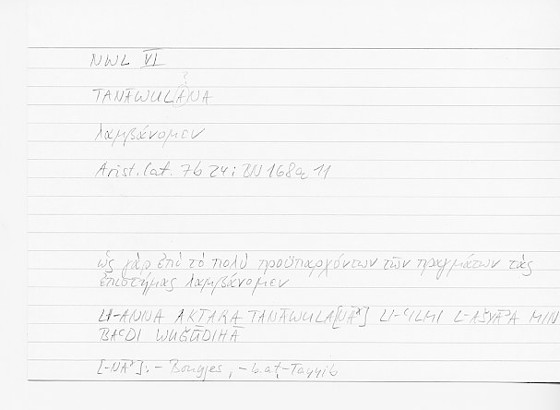 NWL VI
?
TANĀWULĀNA
λαμβάνομεν
Arist. Cat. 7b 24; BN 168a 11
ὡς γὰρ ἐπὶ τὸ πολὺ προϋπαρχόντων τῶν πραγμάτων τὰς
ἐπιστήμας λαμβάνομεν
LI-ANNA AKṮARA TANĀWULA[NĀ*] LI-ʿILMI L-AŠYĀʾA MIN
BAʿDI WUǦŪDIHĀ
[-NĀ*]: – Bouyges, – b.aṭ-Ṭayyib